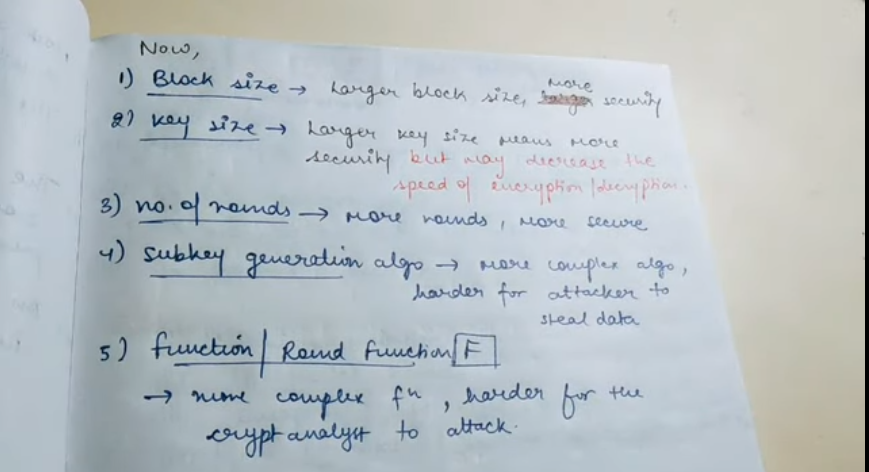 Now,
1) Block size → Larger block size, more security
2) key size → Larger key size means more
security but may decrease the
speed of encryption/decryption.
3) no. of rounds → more rounds, more secure
4) subkey generation algo → more complex algo,
harder for attacker to
steal data
5) function/ Round function F
→ more complex fⁿ, harder for the
cryptanalyst to attack.